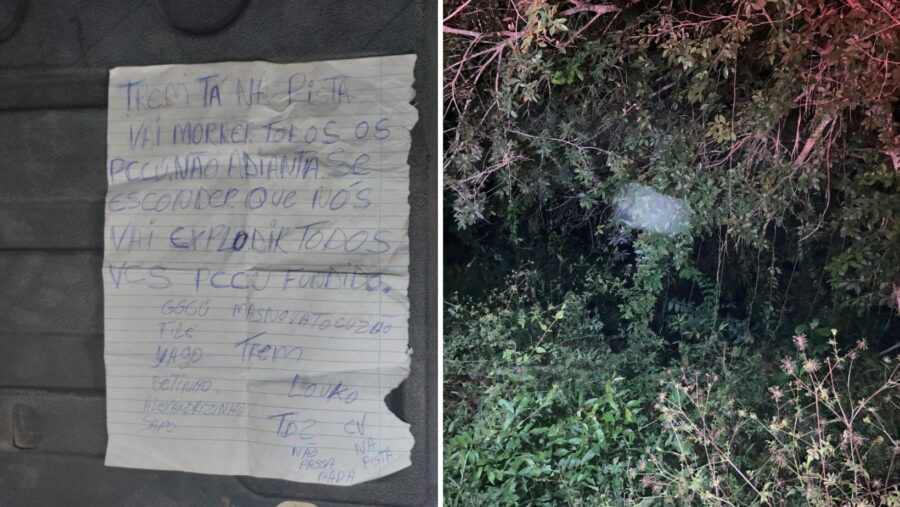 TREM TÁ NA PISTA
VAI MORRER TODOS OS
PCCU. NÃO ADIANTA SE
ESCONDER QUE NÓS
VAI EXPLODIR TODOS
VCS PCCU FUNDIDO.
GGCU MASNOVATOCUZÃO
FILÉ
YAGO TREM
BETINHO
LOUKO
ALEXANDREZINHO
SAPO
TD2 CV
NÃO PASSA NADA
NA PISTA